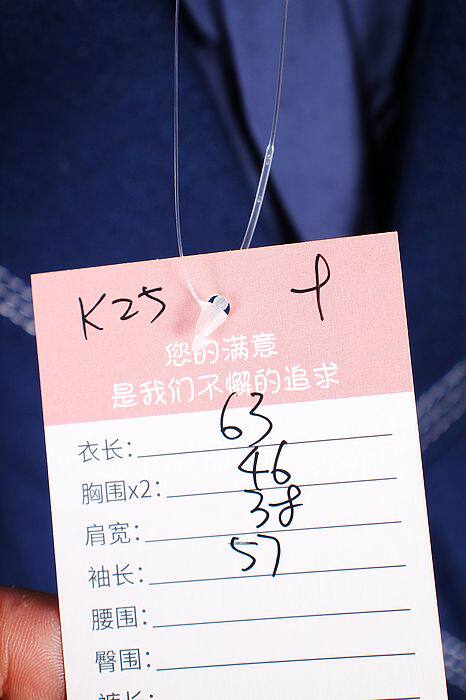 K25
您的满意
是我们不懈的追求
衣长: 63
胸围x2: 46
肩宽: 38
袖长: 57
腰围:
臀围:
裤长: